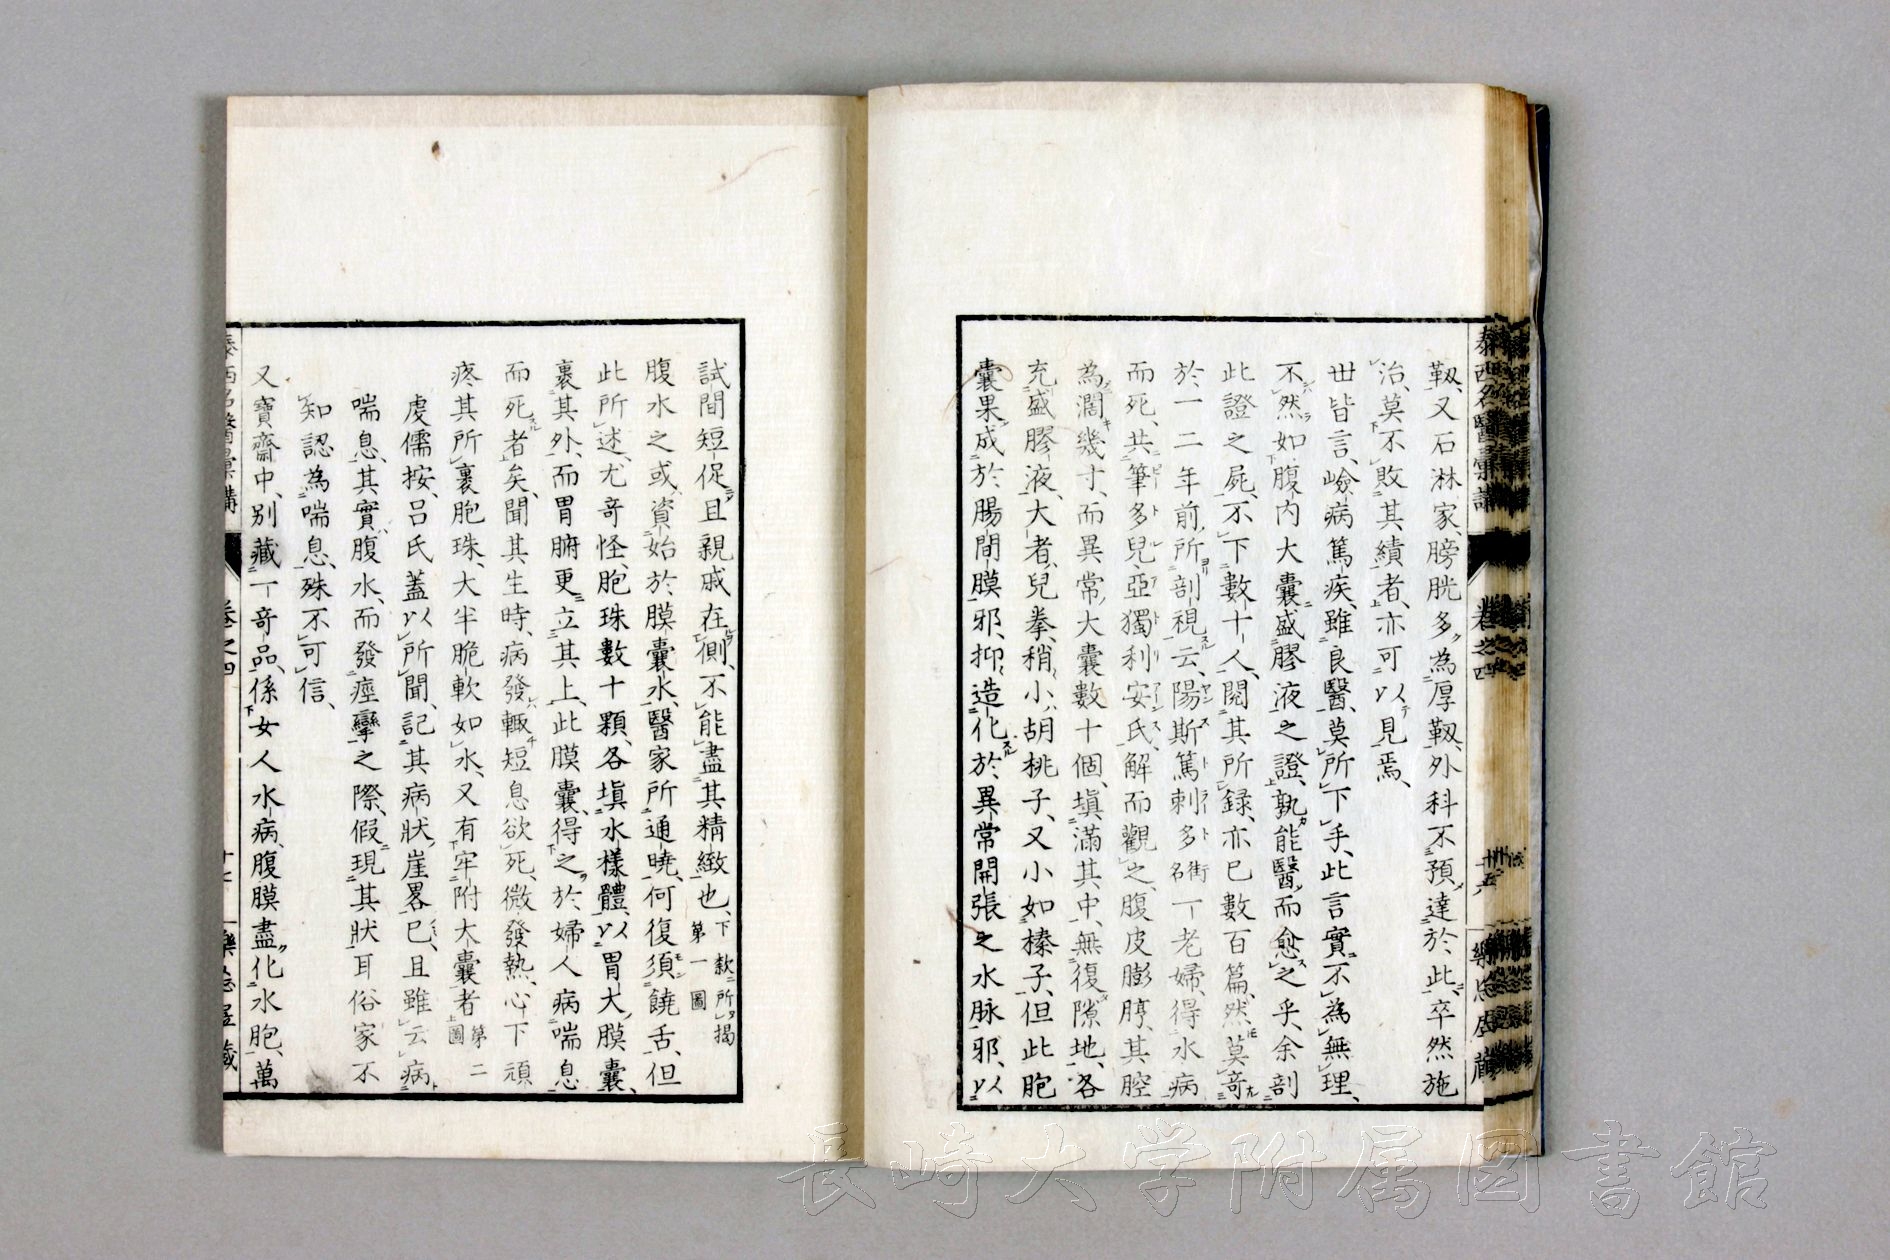 靱、又石淋家、膀胱多為厚靱、外科不預達於此、卒然施
治、莫不敗其績者、亦可以見焉、
世皆言、嶮病篤疾、雖良醫、莫所下手、此言實不為無理、
不然如腹内大嚢盛膠液之證、孰能醫而愈之乎、余剖
此證之屍、不下數十人、閲其所録、亦已數百篇、然莫奇
於一二年前、所剖視云、陽斯篤刺多街名一老婦、得水病
而死、共筆多兒亞獨利安氏、解而觀之、腹皮膨脝、其腔
為濶幾寸、而異常大嚢數十個、塡滿其中、無復隙地、各
充盛膠液、大者兒拳、稍小胡桃子、又小如榛子、但此胞
嚢果成於腸間膜邪、抑造化於異常開張之水脉邪、以
泰西名醫彙講
卷之四
試間短促、且親戚在側、不能盡其精緻也、下款所揭第一圖
腹水之或資始於膜嚢水、醫家所通曉、何復須饒舌、但
此所述、尤奇怪、胞珠數十顆、各塡水樣體、以胃大膜嚢、
裹其外、而胃腑更立其上、此膜嚢、得之於婦人病喘息
而死者矣、聞其生時、病發輙短息欲死、微發熱、心下頑
疼其所裹胞珠、大半脆軟如水、又有牢附大嚢者第二圖
虔儒按、呂氏蓋以所聞、記其病狀、崖畧已、且雖云病
喘息、其實腹水、而發痙攣之際、假現其狀耳、俗家不
知認為喘息、殊不可信、
又寶齋中、別藏一奇品、係女人水病、腹膜盡化水胞、萬
卷之四
長崎大学附属図書館